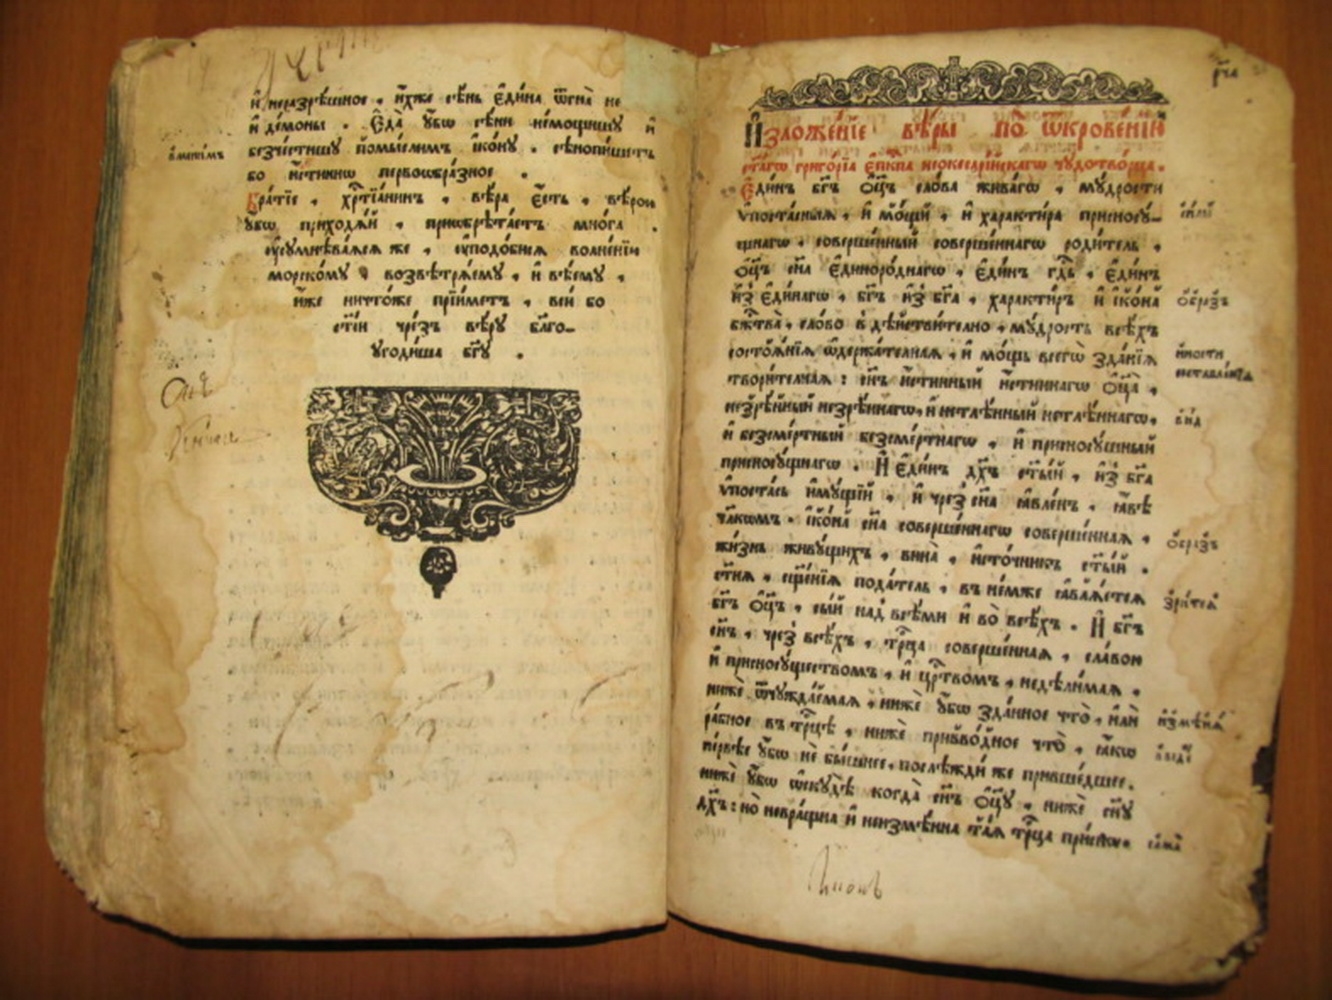 и҆ неразрѣшное , и҆́хже сѣнь є҆ди́на ѿгна̀ не
и҆ де́моны . Є҆да̀ ᲂу҆́бѡ сѣ́ни не́мощнꙋ и҆
безче́стнꙋ помы́слимъ і҆ко́нꙋ . сѣнопи́шетъ
бо и҆́стиннѡ первоѡбра́зное .
Бра́тїе , хрⷭ҇тїа́нинъ , вѣ́ра є҆́сть , вѣ́рою
ᲂу҆́бѡ приходѧ́й , приѡбрѣта́етъ мнѡ́га
ᲂу҆сᲂумнѣва́ѧсѧ же , ᲂу҆подо́бисѧ волне́нїю
морско́мꙋ , возвѣтрѧ́емꙋ , и҆ вѣ́емꙋ ,
и҆́же ничто́же прїи́метъ , вси́ бо
ст҃і́и чре́зъ вѣ́рꙋ бл҃го-
ᲂу҆годи́ша бг҃ꙋ .
рч҃а
И҆зложе́нїе вѣ́ры по̀ ѿкрове́нїю
ст҃а́гѡ григо́рїа є҆пⷭ҇кпа неокесарі́йскагѡ чꙋдотво́рца .
Є҆ди́нъ бг҃ъ ѻ҆ц҃ъ сло́ва жива́гѡ , мꙋ́дрости
ѵ҆поста́сныѧ , и҆ мо́щи , и҆ характи́ра присносꙋ́-
щнагѡ , соверше́нный соверше́ннагѡ роди́тель ,
ѻ҆ц҃ъ сн҃а є҆диноро́днагѡ , є҆ди́нъ гдⷭ҇ь , є҆ди́нъ
и҆з̾ є҆ди́нагѡ , бг҃ъ и҆з̾ бг҃а , характи́ръ и҆ і҆ко́на
бжⷭ҇тва̀ , сло́во дѣ́йствително , мꙋ́дрость всѣ́хъ
состоѧ́нїѧ ѡ҆держа́телнаѧ , и҆ мо́щь всегѡ̀ зда́нїѧ
твори́телнаѧ : сн҃ъ и҆́стинный и҆́стиннагѡ ѻ҆ц҃а̀ ,
незрѣ́нный незрѣ́ннагѡ , и҆ нетлѣ́нный нетлѣ́ннагѡ ,
и҆ безсме́ртный безсме́ртнагѡ , и҆ присносꙋ́щный
присносꙋ́щнагѡ . И҆ є҆ди́нъ дх҃ъ ст҃ы́й , и҆з̾ бг҃а
ѵ҆поста́сь и҆мꙋ́щїй , и҆ чрез̾ сн҃а ꙗ҆вле́нъ , ꙗ҆́вѣ
чл҃кѡмъ . і҆ко́на сн҃а соверше́ннагѡ соверше́ннаѧ ,
жи́знь живꙋ́щихъ , вина̀ , и҆сто́чникъ ст҃ы́й .
ст҃ы́ня , сщ҃е́нїѧ пода́тель , въ не́мже ꙗ҆влѧ́етсѧ
бг҃ъ ѻ҆ц҃ъ , сы́й над̾ всѣ́ми и҆ во̀ всѣ́хъ . И҆ бг҃ъ
сн҃ъ , чрез̾ всѣ́хъ , трⷪ҇ца соверше́ннаѧ , сла́вою
и҆ присносꙋ́ществомъ , и҆ црⷭ҇твомъ , недѣли́маѧ ,
нижѐ ѿчꙋжда́емаѧ , нижѐ ᲂу҆́бѡ зда́нное что̀ , и҆лѝ
ра́бное въ трⷪ҇цѣ , нижѐ привво́дное что̀ , ꙗ҆́кѡ
пе́рвѣе ᲂу҆́бѡ не бы́вшее , послѣжди́ же прише́дшее .
нижѐ ᲂу҆́бѡ ѡ҆скꙋ́дѣ когда̀ сн҃ъ ѻ҆ц҃ꙋ , нижѐ сн҃ꙋ
дх҃ъ : но̀ невра́тна и҆ неизмѣ́нна та́ѧ трⷪ҇ца при́снѡ .
ѻ҆́бразъ
ви́д
ѻ҆́бразъ
зри́тсѧ